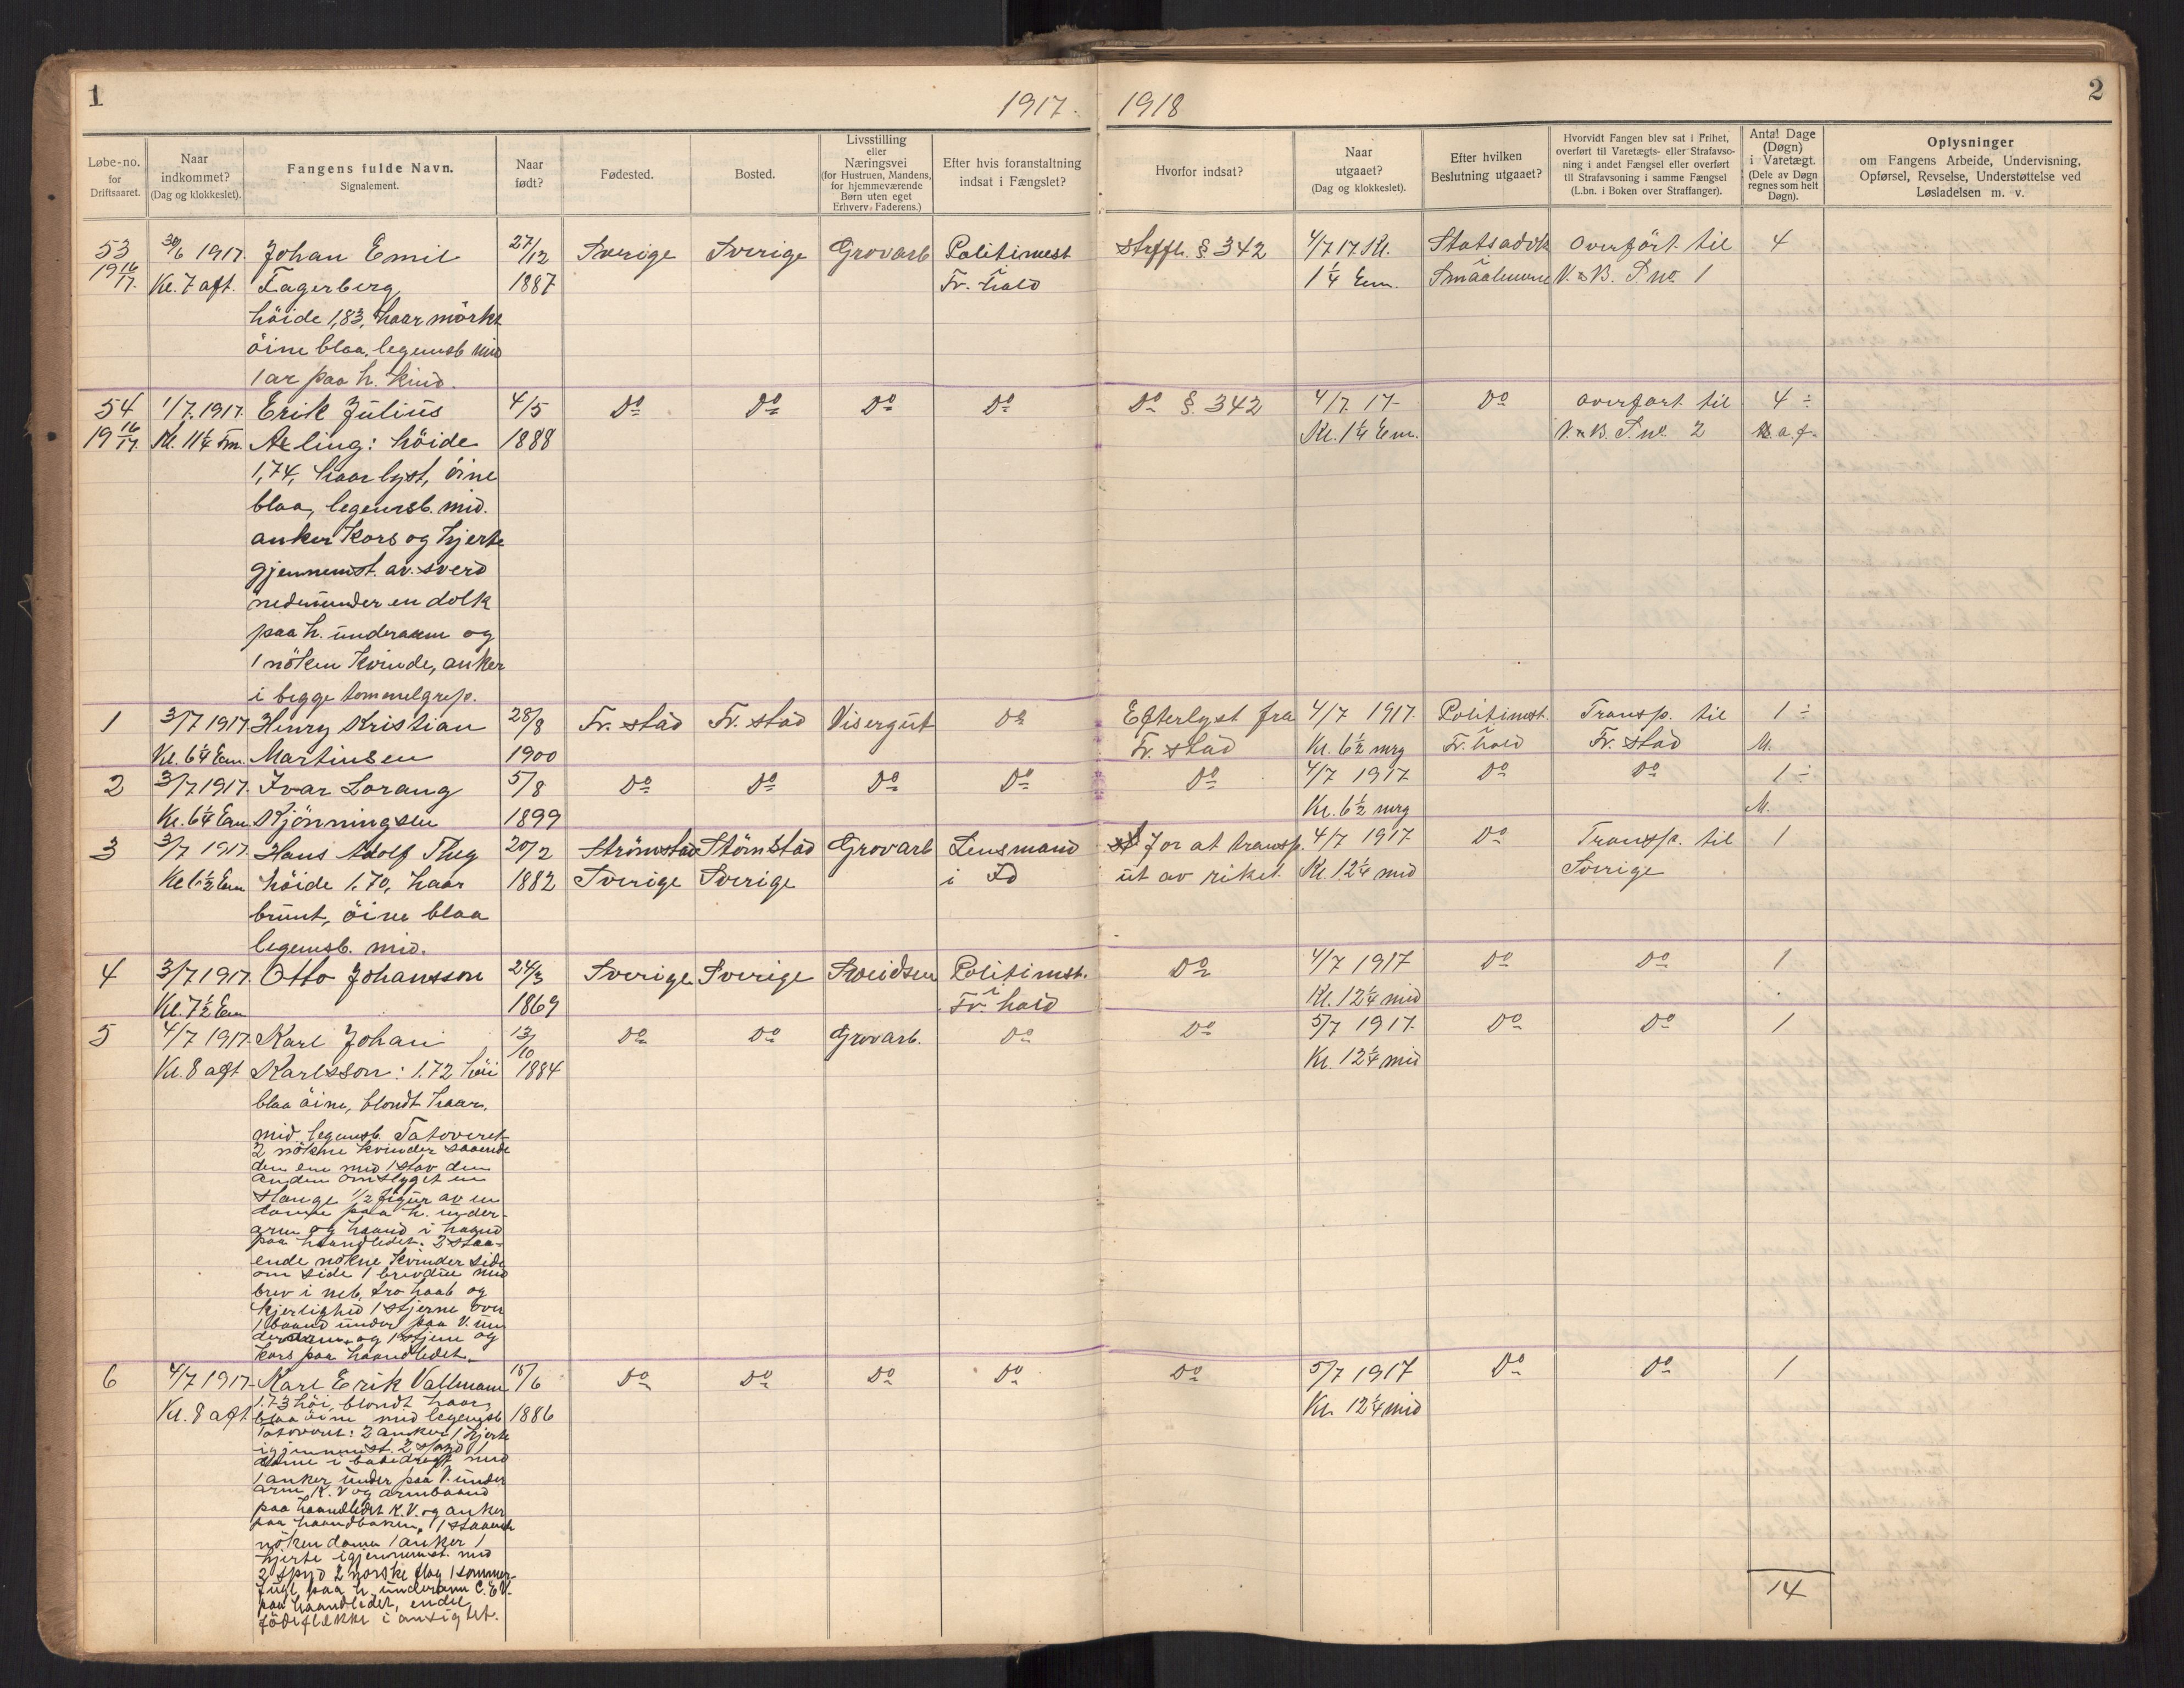 1
1917. 1918
2
Løbe-no. for Driftsaaret.
Naar indkommet? (Dag og klokkeslet).
Fangens fulde Navn. Signalement.
Naar født?
Fødested.
Bosted.
Livsstilling eller Næringsvei (for Hustruen, Mandens, for hjemmeværende Børn uten eget Erhverv, Faderens.)
Efter hvis foranstaltning indsat i Fængslet?
Hvorfor indsat?
Naar utgaaet? (Dag og klokkeslet).
Efter hvilken Beslutning utgaaet?
Hvorvidt Fangen blev sat i Frihet, overført til Varetægts- eller Strafavsoning i andet Fængsel eller overført til Strafavsoning i samme Fængsel (L.bn. i Boken over Straffanger).
Antal Dage (Døgn) i Varetægt. (Dele av Døgn regnes som helt Døgn).
Oplysninger om Fangens Arbeide, Undervisning, Opførsel, Revselse, Understøttelse ved Løsladelsen m. v.
53 30/6 1917. Johan Emil 27/12 Sverige Sverige Grovarb Politimest §342 4/7 17 Kl. Statsadvk overført til 4
19 16/17. Kl. 7 aft. Fagerberg 1887 i Fr.hald 1 1/4 Em. i Smaalenene V.&B. no 1
høide 1,83, haar mörkt
öine blaa, legemsb mid
1 ar paa h. kind.
54 1/7.1917. Erik Julius 4/5 Do Do Do Do Do §.342 4/7.17- Do overfört til 4 ÷
19 16/17. Kl. 11 1/4 Fm. Aeling: höide 1888 Kl. 1 1/4 Em. V.&B. no. 2 a.f.
1,74, haar lyst, öine
blaa, legemsb. mid.
anker Kors og hjerte
gjennemst. av. sverd
nedenunder en dolk
paa h. underarm og
1 nöken Kvinde, anker
i begge tommelgrep.
1 3/7 1917. Henry Kristian 28/8 Fr.stad Fr.stad Visergut Do Efterlyst fra 4/7 1917. Politimst. Transp. til 1 ÷
Kl. 6 1/4 Em. Martinsen 1900 Fr.stad Kl. 6 1/2 mrg i Fr.hald Fr.stad M.
2 3/7 1917. Ivar Lorang 5/8 Do Do Do Do Do 4/7 1917 Do Do 1 ÷
Kl. 6 1/4 Em. Kjönningsen 1899 Kl. 6 1/2 mrg M.
3 3/7 1917. Hans Adolf Theg 20/2 Strömstad Stömstad Grovarb Lensmand For at transp. 4/7 1917 Do Transp. til 1
Kl 6 1/2 Em höide 1.70, haar 1882 Sverige Sverige i Id ut av riket. Kl. 12 1/4 mid Sverige
brunt, öine blaa
legemsb. mid.
4 3/7 1917. Otto Johansson 24/3 Sverige Sverige Politimst. Do 4/7 1917 Do Do 1
Kl. 7 1/2 Em 1869 i Fr.hald Kl. 12 1/4 mid
5 4/7 1917. Karl Johan 13/10 Do Do Grovarb. Do Do 5/7 1917. Do Do 1
Kl. 8 aft Karlsson: 1.72 höi 1884 Kl. 12 1/4 mid
blaa öine, blondt haar,
mid legemsb. Tatoveret
2 nökne kvinder staaende
den ene med 1 stav den
anden omslyget en
slange 1/2 figur av en
dame paa h. under-
arm og haand i haand
paa haandledet. 2 staa-
ende nökne Kvinder side
om side 1 brevdue med
brev i neb, tro haab og
kjerlighed 1 stjerne over
1 baand under paa V. un
derarm og 1 stjerne og
kors paa haandledet.
6 4/7 1917. Karl Erik Vallmann 15/6 Do Do Do Do Do 5/7 1917 Do Do 1
Kl. 8 aft 1.73 höi, blondt haar, 1886 Kl. 12 1/4 mid
blaa öine mid legemsb
Tatoveret: 2 anker 1 hjerte
igjennemst. 2 spyd 1
dame i badedragt med
1 anker under paa V. under
arm, K. V og armbaand
paa haandledet K.V. og anker
paa haandbaken, 1 staaende
nöken dame 1 anker 1
hjerte igjennemst. med
2 spyd 2 norske flag 1 sommer-
fugl paa h underarm C.E.V.
paa haandledet, endel
födeflekke i ansigtet.
14